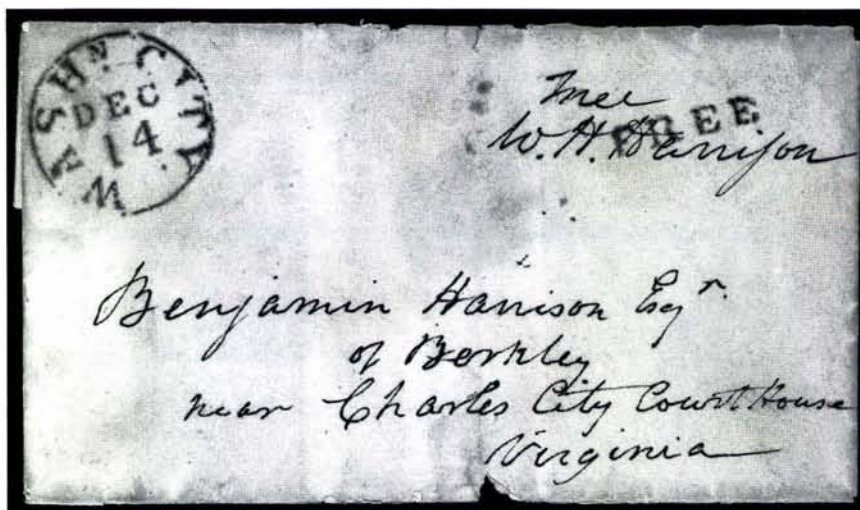 WASHN CITY
DEC
14
Free
FREE
W. H. Harrison
Benjamin Harrison Esqr.
of Berkley
near Charles City Court House
Virginia